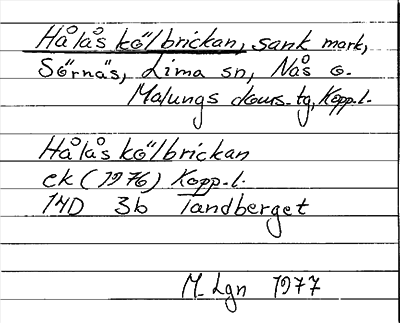 Hålås kölbrickan, sank mark,
Sörnäs, Lima sn, Nås o.
Malungs doms.tg, Kopp.l.
Hålås kölbrickan
ek (1976) Kopp.l.
14D 3b Tandberget
M. Lgn 1977